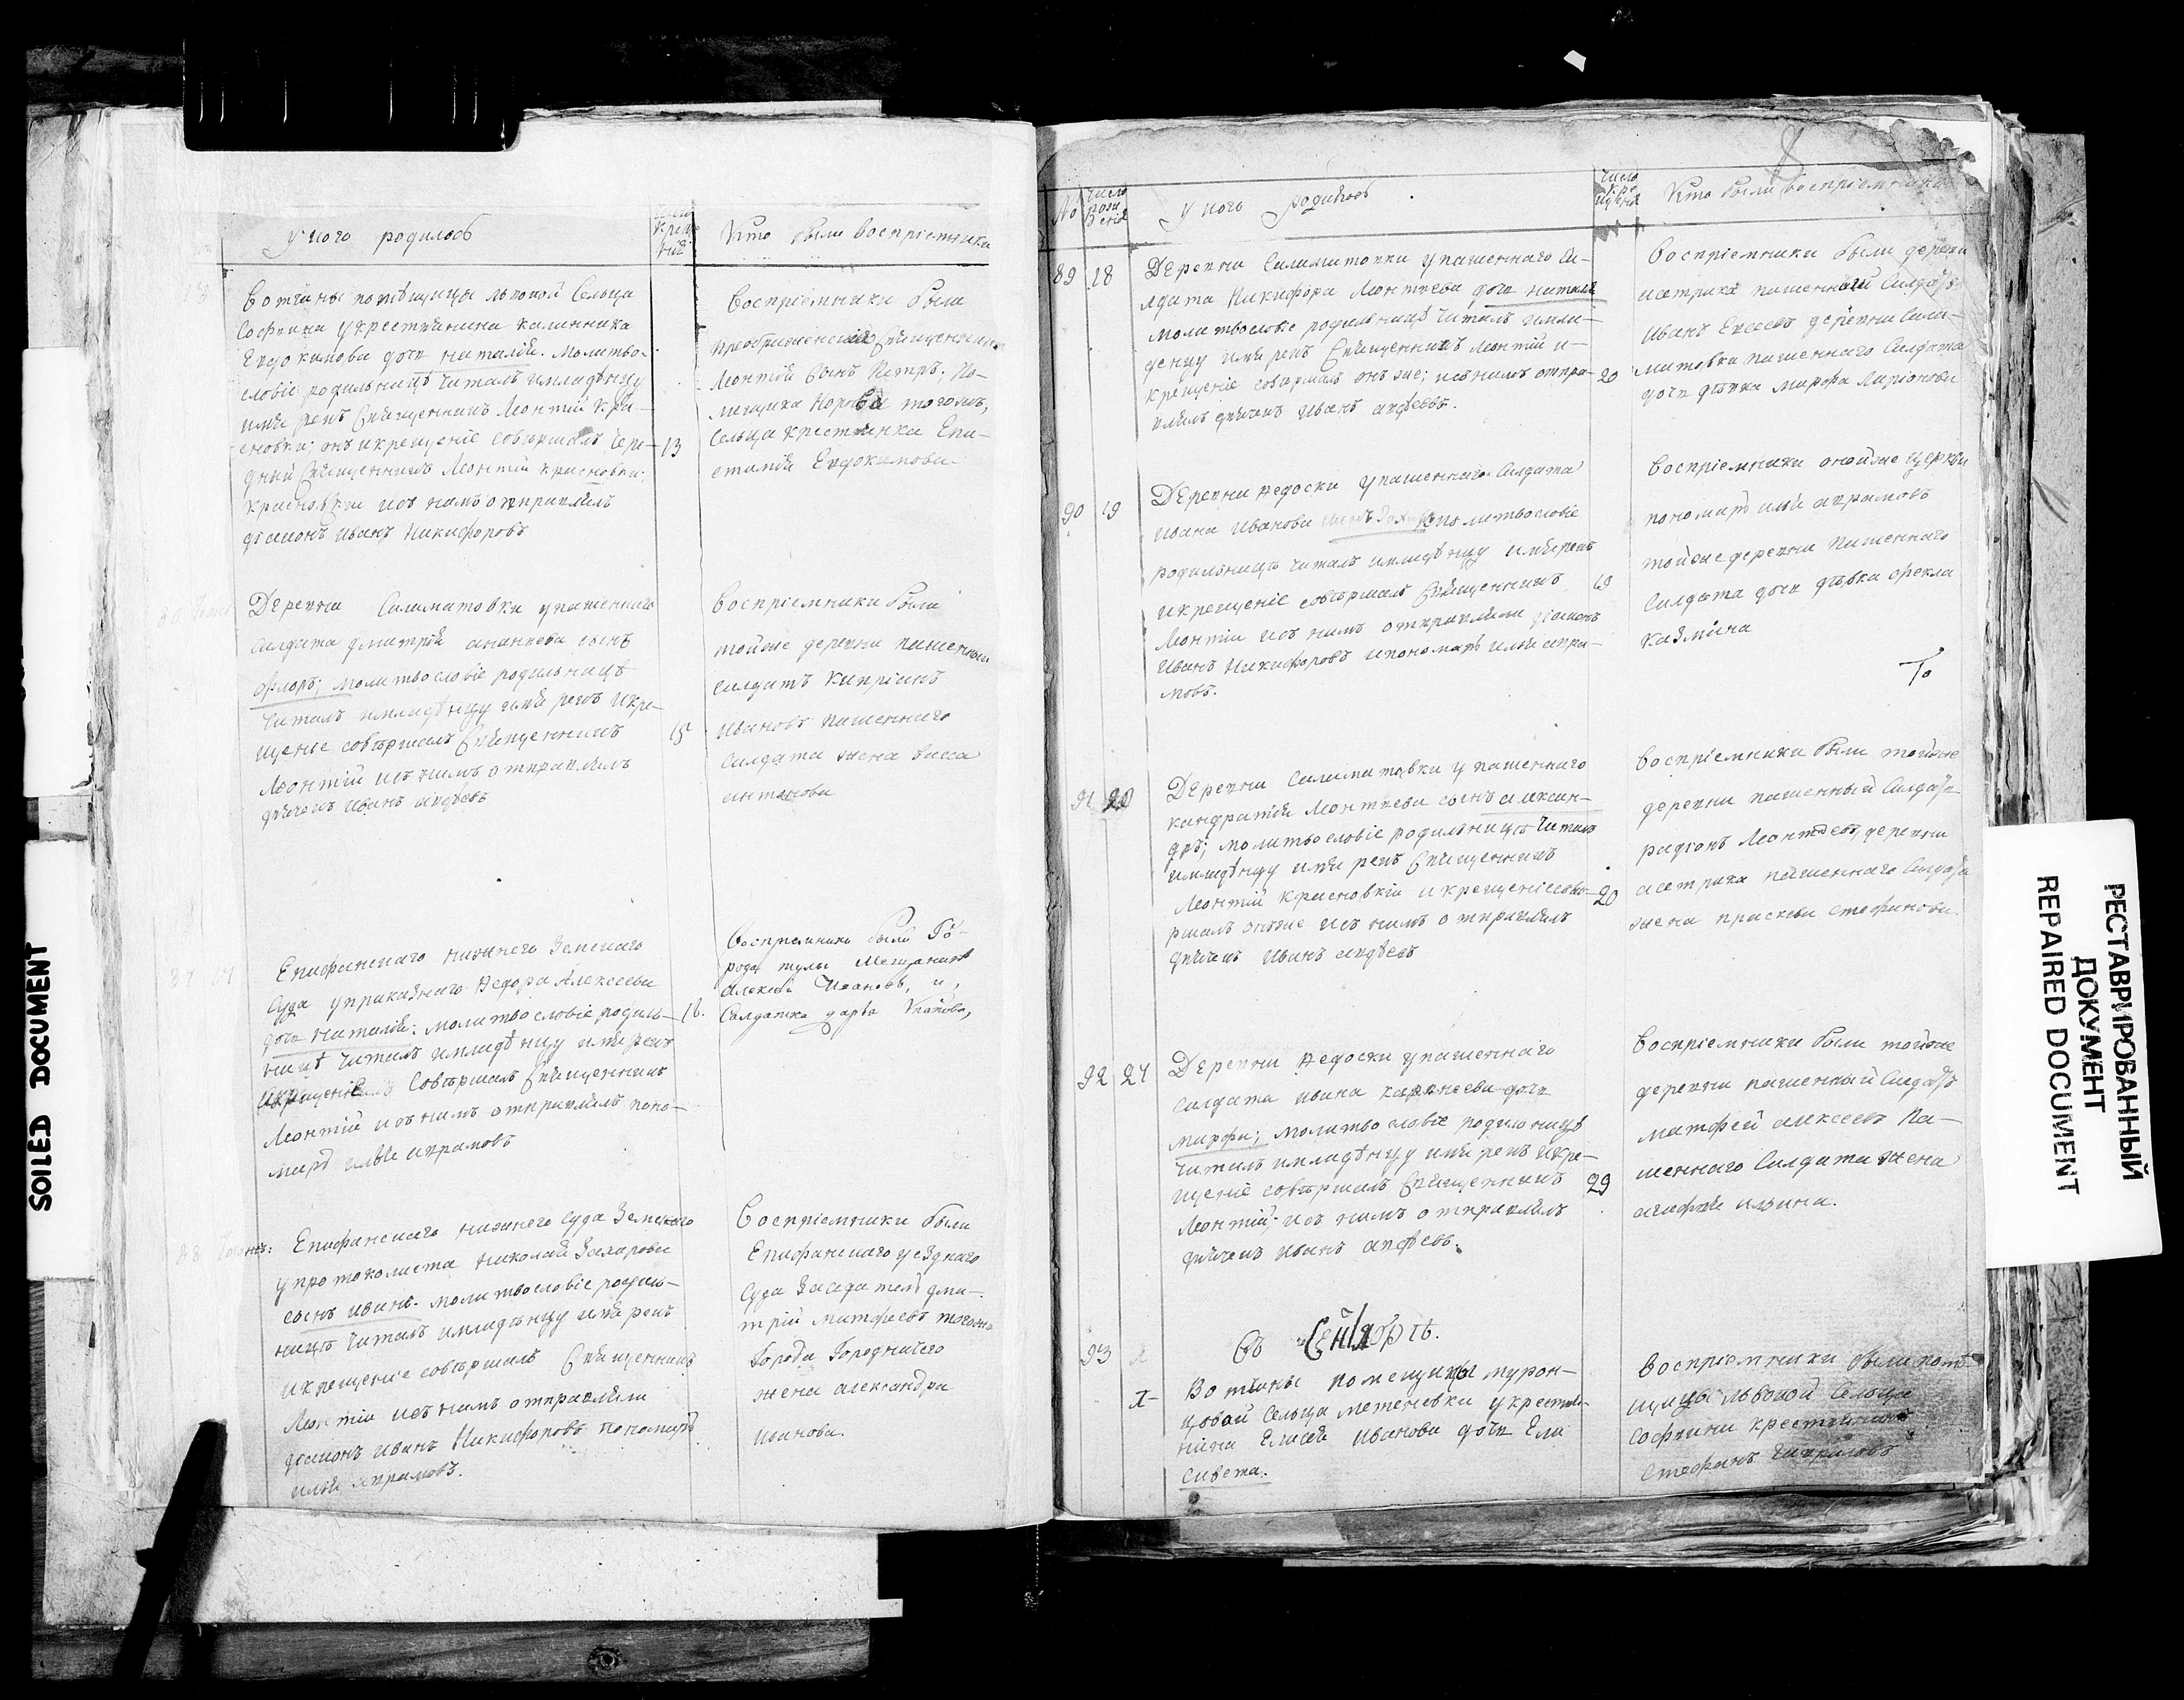 у ного родилось
Кто были воспріемники
Вотчины помѣщицы львовой Сельца
Софьина у крестьянина калинника
Евдокимова дочь наталія. молитво-
словіе родильницѣ читалъ имладѣнцу
имя реκъ Священникъ Леонтій Кра-
сновки; онъ икрещеніе совершалъ Чере-
дный Священникъ Леонтій красновки:
красновски исъ нимъ отправлялъ
діаконъ иванъ Никифоровъ
13
Воспріемники были
преображенскій Священника
Леонтія Сынъ Петръ; По-
мещика тогожъ,
Сельца крестьянка Епи-
стимія Евдокимова
Деревни Салиматовки упашеннаго
Салдата дмитрія ананьева сынъ
Флоръ; молитвословіе родильницѣ
читалъ имладѣнцу имя рекъ икре-
щеніе совершалъ Священникъ
Леонтій исъ нимъ отправлялъ
дьячекъ иванъ авдѣевъ
15
Воспріемники были
тойже деревни пашенный
салдатъ кипріянъ
ивановъ пашеннаго
салдата жена васса
антонова
Епифанскаго нижнего Земскаго
Суда уприказнаго Федора Алексѣева
дочь наталія: молитвословіе родиль-
ницѣ читалъ имладѣнцу имя рекъ
икрещеніе Совершалъ Священникъ
Леонтій исъ нимъ отправлялъ поно-
марь илья аврамовъ
Воспріемники были Го-
рода тулы Мещанинъ
Алексѣй Ивановъ, и,
Салдатка дарья
Епифанскаго нижнего Суда Земскаго
упротоколиста николая Захарова
сынъ иванъ. молитвословіе родиль-
ницѣ читалъ имладѣнцу имя рекъ
икрещеніе совершалъ Священникъ
Леонтій исъ нимъ отправляли
діаконъ иванъ Никифоровъ пономарь
илья аврамовъ.
Воспріемники были
Епифанскаго уезднаго
Суда Заседатель дми-
трій матфеевъ тогожъ
Города Городничего
жена александра
иванова.
No
Число рожденія
у ного родилось
Число крещенія
Кто были воспріемники
89 18
Деревни Салиматовки упашеннаго Са-
лдата Никифора Леонтьева дочь наталія
молитвословіе родильницѣ читалъ имла-
денцу имя рекъ Священникъ Леонтій и-
крещеніе совершалъ онъ же; исъ нимъ отпра-
влялъ дьячекъ иванъ авдѣевъ.
20
Воспріемники были деревни
пашенный Салдатъ
Иванъ Евсеевъ деревни Сали-
матовки пашеннаго Салдата
дочь дѣвка марфа Ларіонова
90 19
Деревни Федоски упашеннаго Салдата
ивана иванова молитвословіе
родильницѣ читалъ имладѣнцу имя рекъ
икрещеніе совершалъ Священникъ
Леонтій исъ нимъ отправляли діаконъ
иванъ Никифоровъ ипономарь илья авра-
мовъ.
19
Воспріемники онойже церкви
пономарь илья аврамовъ
тойже деревни пашеннаго
Салдата дочь дѣвка фекла
казмина
То
91 20
Деревни Салиматовки упашеннаго
кандратія Леонтьева сынъ алексан-
дръ; молитвословіе родильницѣ читалъ
имладѣнцу имя рекъ Священникъ
Леонтій красновкій икрещеніе сове-
ршалъ онъже исъ нимъ отправлялъ
дьячекъ иванъ авдѣевъ
20
Воспріемники были тойже
деревни пашенный Салдатъ
радіонъ Леонтьевъ, деревни
пашеннаго Салдата
жена прасковья стефанова.
92 27
Деревни Федоски упашеннаго
салдата ивана карнеева дочь
марфа; молитвословіе родильницѣ
читалъ имладѣнцу имя рекъ икре-
щеніе совершалъ Священникъ
Леонтій; исъ нимъ отправлялъ
дьячекъ иванъ авдѣевъ.
29
Воспріемники были тойже
деревни пашенный Салдатъ
матфей алексеевъ Па-
шеннаго Салдата жена
агафія ильина.
Въ Сентябрѣ.
93
Вотчины помещицы мурон-
цовой Сельца метеневки укрестья-
нина Елисея иванова дочь Ели-
савета.
Воспріемники были помѣ-
щицы львовой Сельца
Софьина крестьянинъ
стефанъ
SOILED DOCUMENT
РЕСТАВРИРОВАННЫЙ
ДОКУМЕНТ
REPAIRED DOCUMENT